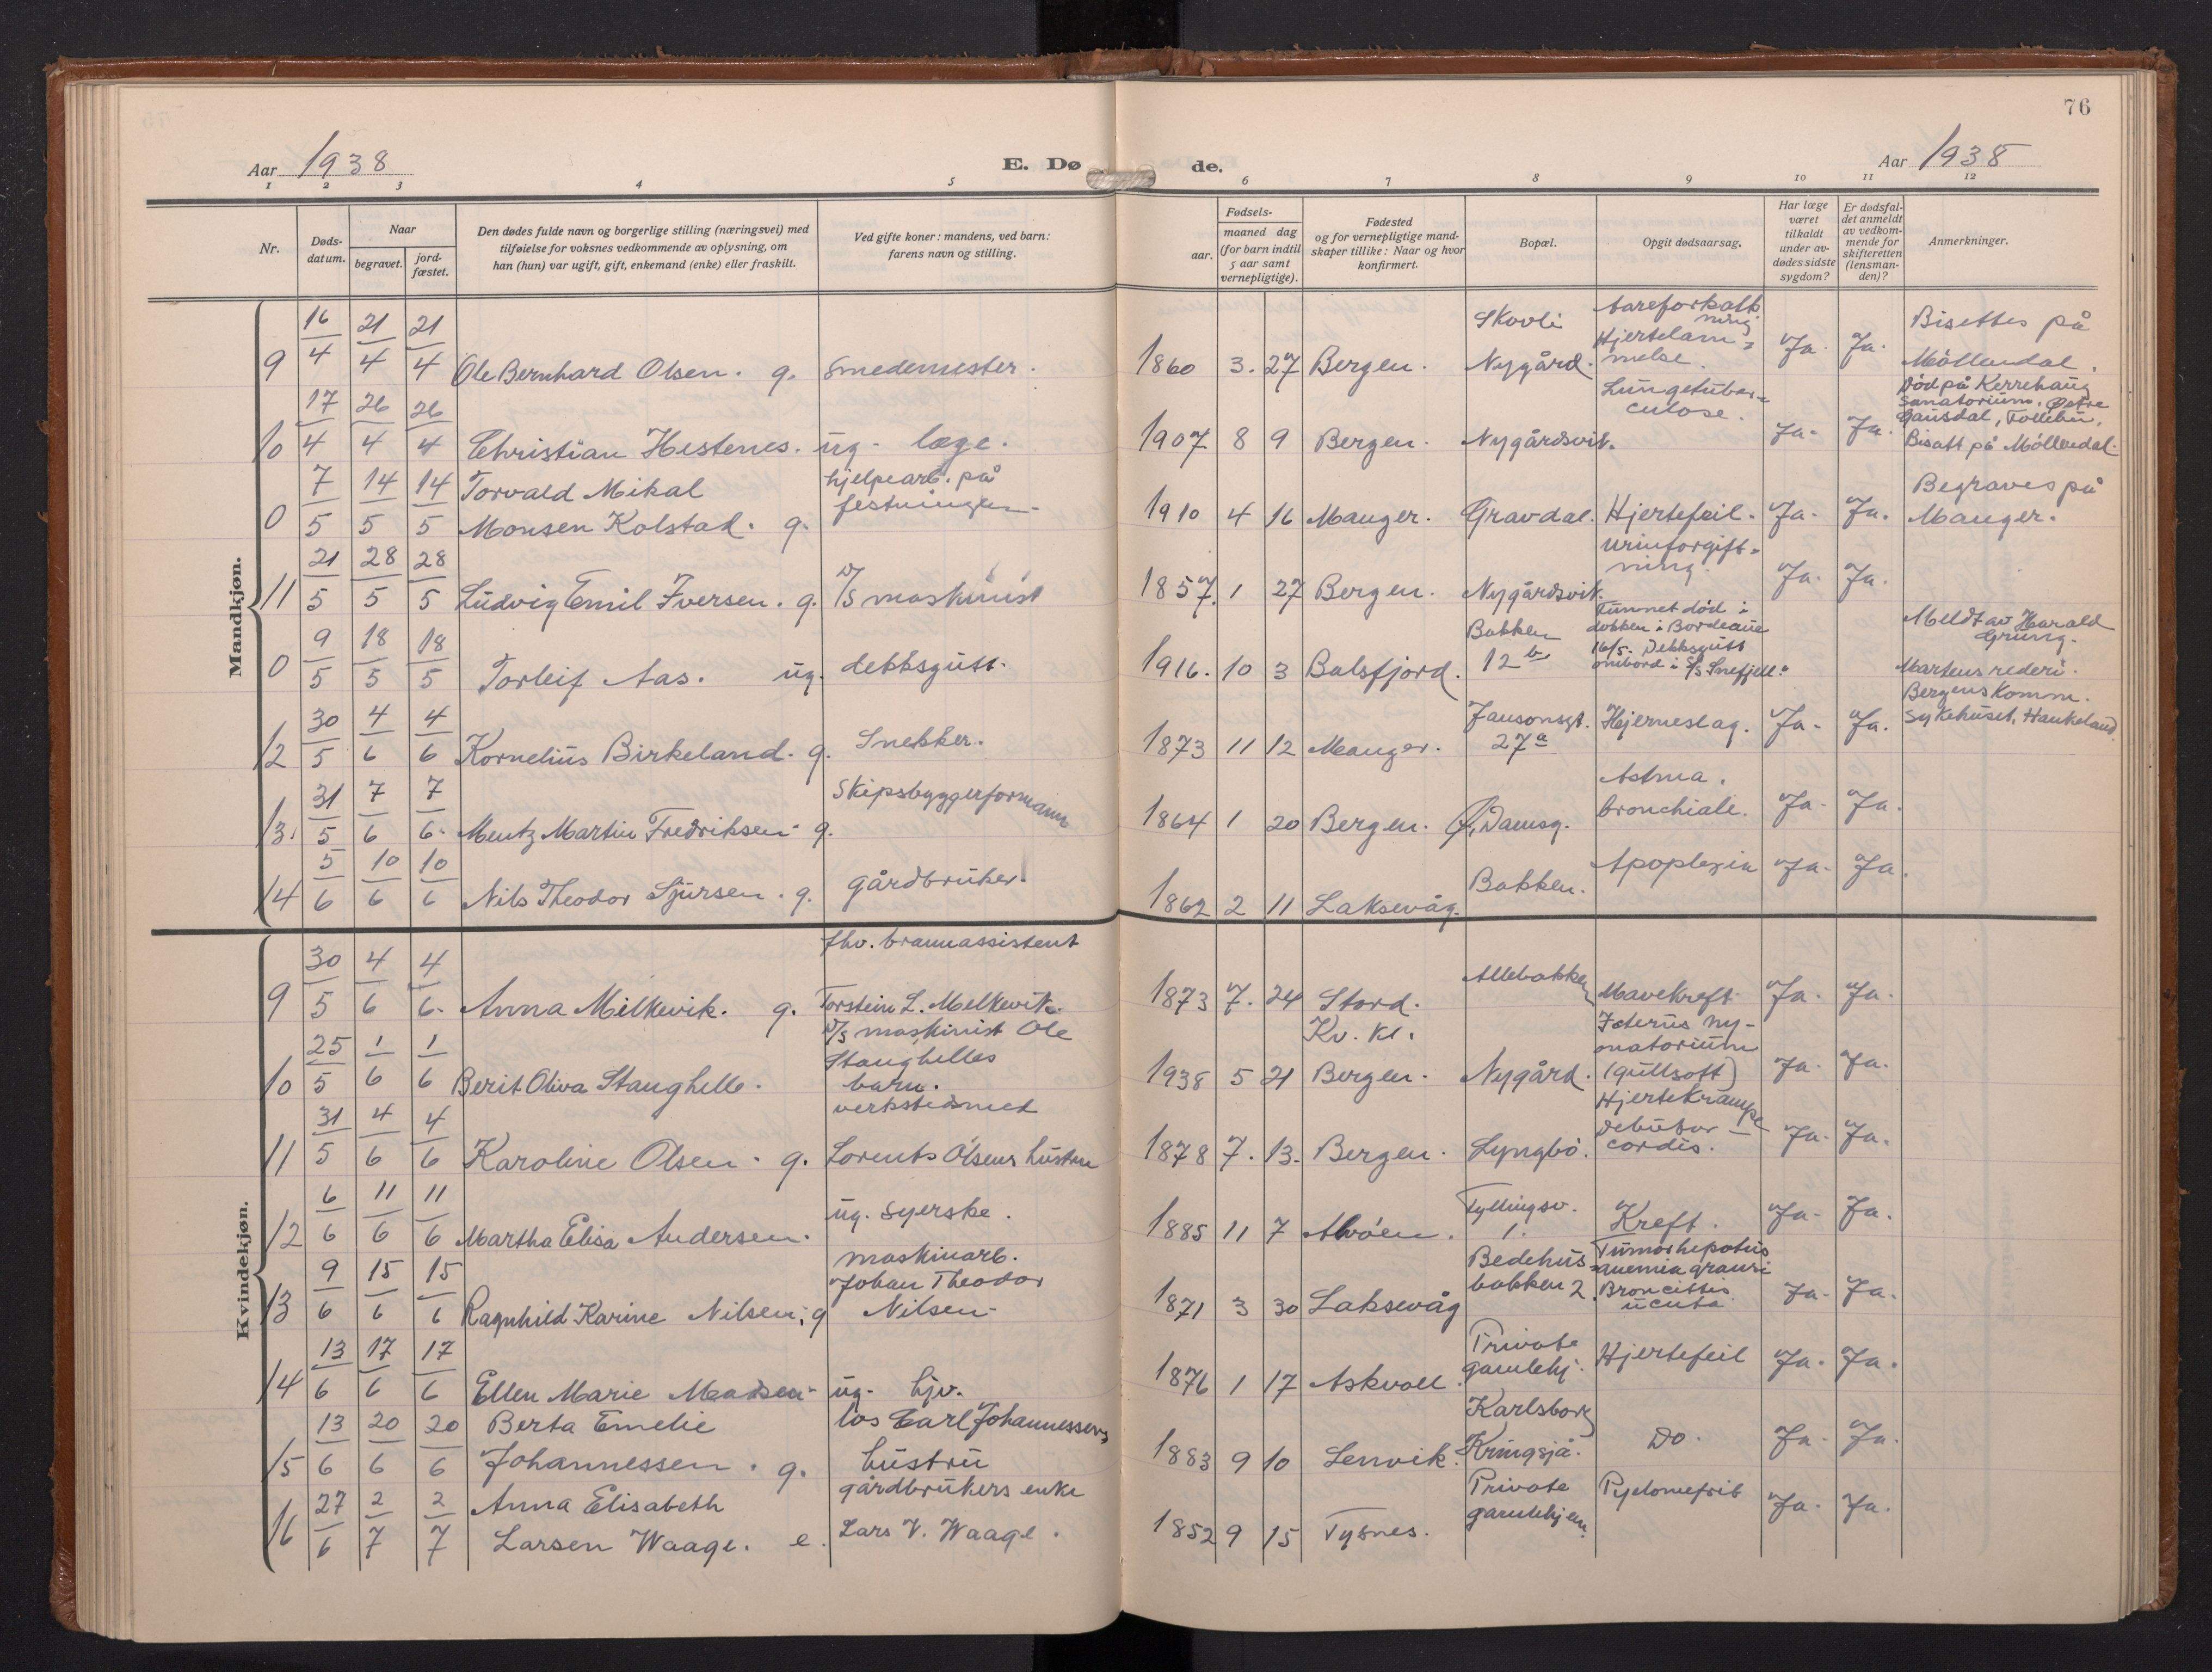 76
Aar 1938 E. Dø de. Aar 1938
1 2 3 4 5 6 7 8 9 10 11 12
Nr. Døds-datum. Naar begravet. jord-fæstet. Den dødes fulde navn og borgerlige stilling (næringsvei) med tilføielse for voksnes vedkommende av oplysning, om han (hun) var ugift, gift, enkemand (enke) eller fraskilt. Ved gifte koner: mandens, ved barn: farens navn og stilling. Fødsels- aar. maaned dag (for barn indtil 5 aar samt vernepligtige). Fødested og for vernepligtige mand-skaper tillike: Naar og hvor konfirmert. Bopæl. Opgit dødsaarsag. Har læge været tilkaldt under av-dødes sidste sygdom? Er dødsfal-det anmeldt av vedkom-mende for skifteretten (lensman-den)? Anmerkninger.
Mandkjøn.
9 16/4 21/4 21/4 Ole Bernhard Olsen. g. smedemester. 1860 3. 27 Bergen. Skovli Nygård. Aareforkalkning Hjertelammelse. Ja. Ja. Bisettes på Møllendal.
10 17/4 26/4 26/4 Christian Hestenes. ug. læge. 1907 8 9 Bergen. Nygårdsvik. Lungetuberculose. Ja. Ja. Død på Kerrehaug Sanatorium, Østre Gausdal, Follebu, Bisatt på Møllendal.
0 7/5 14/5 14/5 Torvald Mikal Monsen Kolstad. g. hjelpearb. på festningen. 1910 4 16 Manger. Gravdal. Hjertefeil. Ja. Ja. Begraves på Manger.
11 21/5 28/5 28/5 Ludvig Emil Iversen. g. D/S maskinist 1857. 1 27 Bergen. Nygårdsvik. Urinforgiftning. Ja. Ja.
0 9/5 18/5 18/5 Torleif Aas. ug. dekksgutt. 1916. 10 3 Balsfjord. Bakken 12 b Funnet død i dokken i Bordeaux 16/5. Dekksgutt ombord i S/S Snefjell. Meldt av Harald Grung. Martens rederi.
12 30/5 4/6 4/6 Kornelius Birkeland. g. Snekker. 1873 11 12 Manger. Jansonsgt. 27 a Hjerneslag. Ja. Ja. Bergens Komm. Sykehuset, Haukeland.
13. 31/5 7/6 7/6. Mentz Martin Fredriksen. g. Skipsbyggerformann 1864 1 20 Bergen. Ø. Damsg. Astma. bronchiale. Ja. Ja.
14 5/6 10/6 10/6 Nils Theodor Sjursen. g. gårdbruker. 1862 2 11 Laksevåg. Bakken. Apoplexia Ja. Ja.
Kvindekjøn.
9 30/5 4/6 4/6. Anna Milkevik. g. fhv. brannassistent Torstein L. Melkevik. 1873 7. 24 Stord. Allebakken Mavekreft. Ja. Ja.
10 25/5 1/6 1/6 Berit Oliva Stanghelle. D/S maskinist Ole Stanghelles barn. 1938 5 21 Kv. Kl. Bergen. Nygård. Icterus ny-onatorium (gullsott) Ja. Ja.
11 31/5 4/6 4/6 Karoline Olsen. g. verkstedsmed Lorents Olsens hustru 1878 7. 13. Bergen. Lyngbø. Hjertekrampe Debutor cordis. Ja. Ja.
12 6/6 11/6 11/6 Martha Elisa Andersen. ug. syerske. 1885 11 7 Alvøen. Fyllingsv. 1. Kreft. Ja. Ja.
13 9/6 15/6 15/6 Ragnhild Karine Nilsen. g maskinarb. Johan Theodor Nilsen. 1871 3 30 Laksevåg Bedehusbakken 2. Tumor hepatus anemia gravis Broncittis acuta Ja. Ja.
14 13/6 17/6 17/6 Ellen Marie Madsen. ug. hjv. 1876 1 17 Askvoll. Private gamlehj. Hjertefeil Ja. Ja.
15 13/6 20/6 20/6 Berta Emelie Johannessen. g. los Carl Johannessens hustru 1883 9 10 Lenvik. Karlsborg Kringsjå. Do. Ja. Ja.
16 27/6 2/7 2/7 Anna Elisabeth Larsen Waage. e. gårdbrukers enke Lars V. Waage. 1852 9 15 Tysnes. Private gamlehjem. Pyelonefrit Ja. Ja.